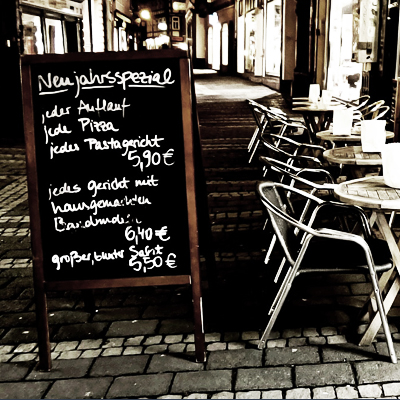 Neujahrsspezial
jeder Auflauf
jede Pizza
jedes Pastagericht
5,90 €
jedes Gericht mit
hausgemachten
Bandnudeln
6,40 €
großer, bunter Salat
5,50 €